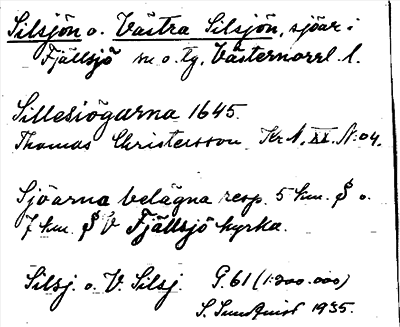 Silsjön o. Västra Silsjön, sjöar i
Fjällsjö sn o. tg. Västernorrl. l.
Sillesiögarna 1645.
Thomas Christersson Kr. A. XX. N:o 4.
Sjöarna belägna resp. 5 km. S o.
7 km. S V Fjällsjö kyrka.
Silsj. o. V. Silsj. G. 61 (1:200.000)
S. Sundqvist 1935.